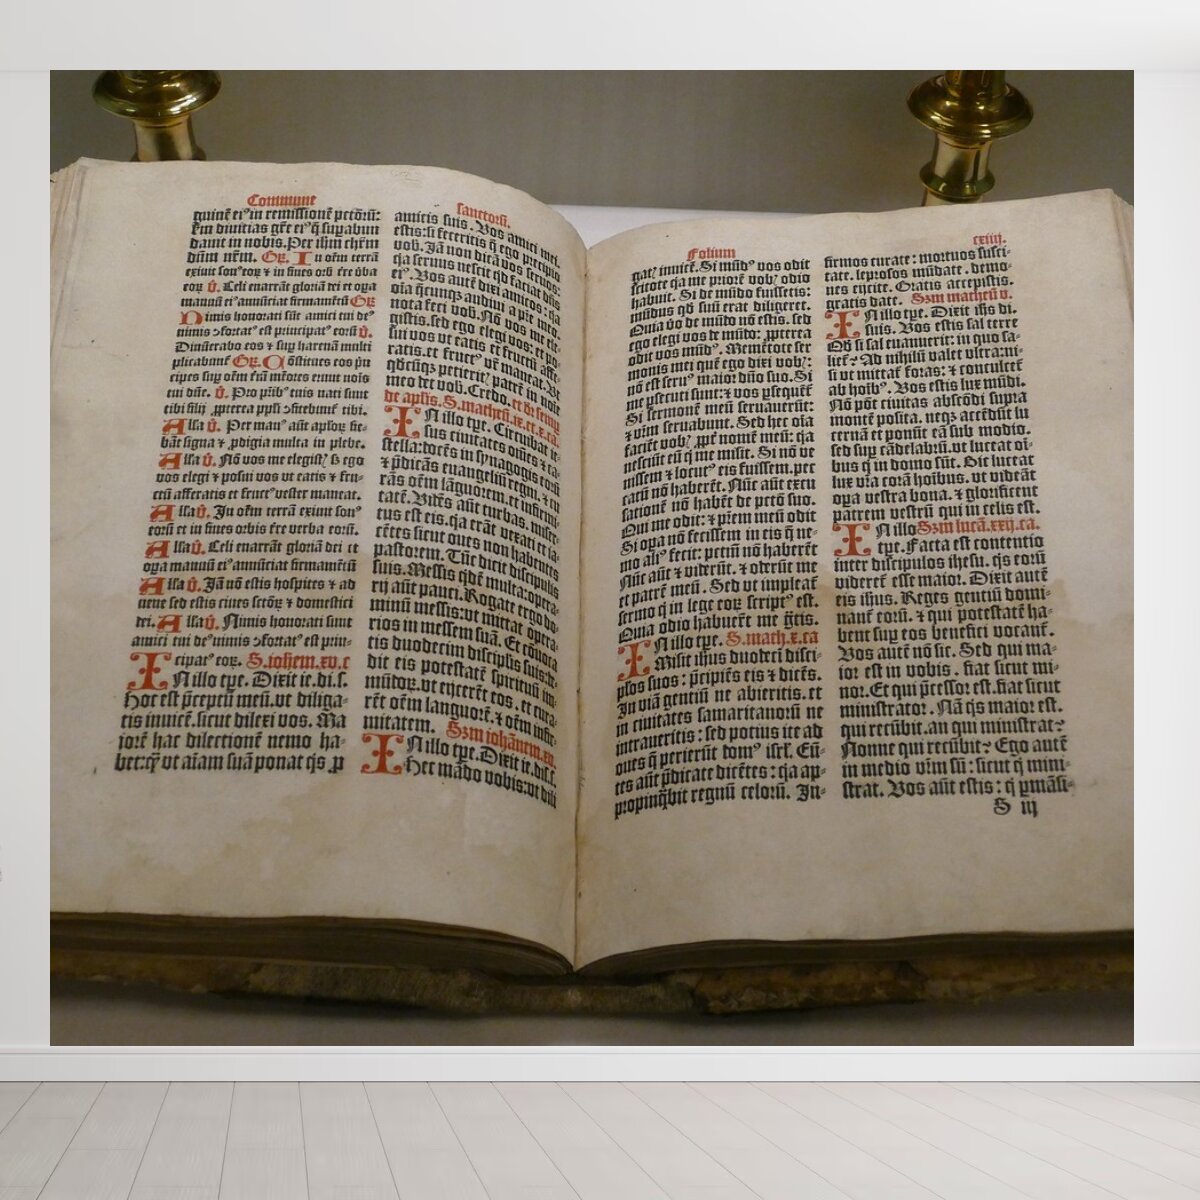 Commune
guinē ei⁹ in remissionē pctōrū:
Em divitias grē ei⁹ q̄ supabun
dauit in nobis. Per ihm chrm
dūm nrm. Gr̄. In oēm terrā
exiuit son⁹ eoꝝ ⁊ in fines orb tre ūba
eoꝝ v̄. Celi enarrāt gloriā dei et opa
manuū ei⁹ annūciat firmamētū Gr̄
Nimis honorati sūt amici tui de⁹
nimis ɔfortat⁹ est principat⁹ eorū v̄.
Dinūerabo eos ⁊ sup harenam multi
plicabunt Gr̄. Cōstitues eos pn
cipes sup oēm trā mēores erunt nois
tui dn̄e. v̄. Pro prib⁹ tuis nati sunt
tibi filij ꝓpterea ppli ɔfitebunt tibi.
Alla v̄. Per man⁹ aūt aploꝝ fie-
bāt signa ⁊ ꝓdigia multa in plebe.
Alla v̄. Nō vos me elegist̄ ß ego
vos elegi ⁊ posui vos ut eatis ⁊ fru-
ctū afferatis et fruct⁹ vester maneat.
Alla v̄. In oēm terrā exiuit son⁹
eorū et in fines orbis tre verba eorū.
Alla v̄. Celi enarrāt gloriā dei et
opa manuū ei⁹ annūciat firmamētū
Alla v̄. Jā nō estis hospites ⁊ ad
uene sed estis ciues sctōꝝ ⁊ domestici
dei. Alla v̄. Nimis honorati sunt
amici tui de⁹ nimis ɔfortat⁹ est prin-
cipat⁹ eoꝝ. S. iohem. xv. c
IN illo tpe. Dixit ie. di. s.
Hoc est p̄ceptū meū. vt diliga-
tis inuicē. sicut dilexi vos. Ma
iorē hac dilectionē nemo ha-
bet: qȝ vt aīam suā ponat q̄s ꝓ
sanctorū.
amicis suis. Vos amici mei
estis: si feceritis q̄ ego precipio
vob. Jā non dicā vos seruos:
q̄a seruus nescit qd faciat dn̄s
ei⁹. Vos autē dixi amicos: q̄a
oīa q̄cunqȝ audiui a p̄re meo.
nota feci vob. Nō vos me ele-
gistis. sed ego elegi vos: et po-
sui vos vt eatis et fructū affe-
ratis. et fruct⁹ vr̄ maneat. Vt
qd̄cūqȝ petierit⁹ patrē in noīe
meo det vob. Credo. et dr̄ semp
de aplis. S. matheū. ix. et. x. ca.
IN illo tpe. Circuibat ie-
sus ciuitates om̄es ⁊ ca-
stella: docēs in synagogis eorū
⁊ p̄dicās euangeliū regni. ⁊ cu
rās oēm lāguorem. et infirmi-
tatē. Vidēs aūt turbas. miser-
tus est eis. q̄a erāt vexati et ia-
cētes sicut oues non habentes
pastorem. Tūc dicit discipulis
suis. Messis q̄dē multa: opera-
rij aūt pauci. Rogate ergo do-
minū messis: vt mittat opera-
rios in messem suā. Et cōuoca
tis duodecim disciplis suis: de-
dit eis potestatē spirituū im-
mūdoꝝ. vt eijcerēt eos. et cura-
rēt oēm languorē. ⁊ oēm infir-
mitatem. Szm iohānem. xv.
IN illo tpe. Dixit ie. dis. s.
Hec mādo vobis: vt dili
Folium
gat⁹ inuicē. Si mūd⁹ vos odit
scitote q̄a me priorē vob⁹ odio
habuit. Si de mūdo fuissetis:
mūdus qd̄ suū erat diligeret.
Quia v̄o de mūdo nō estis. sed
ego elegi vos de mūdo: ꝓpterea
odit vos mūd⁹. Memētote ser
monis mei quē ego dixi vob⁹:
nō est seru⁹ maior dn̄o suo. Si
me p̄secuti sunt: ⁊ vos p̄sequēt⁹
Si sermonē meū seruauerūt:
⁊ v̄rm seruabunt. Sed hec oīa
faciēt vob⁹ ꝓpt̄ nomē meū: q̄a
nesciūt eū q̄ me misit. Si nō ve
nissem ⁊ locut⁹ eis fuissem. pec
catū nō haberēt. Nūc aūt excu
sationē nō habēt de pctō suo.
Qui me odit: ⁊ p̄rem meū odit
Si opa nō fecissem in eis q̄ ne-
mo ali⁹ fecit: petīū nō haberēt
Nūc aūt ⁊ viderūt. ⁊ oderūt me
et patrē meū. Sed vt impleat⁹
sermo q̄ in lege eoꝝ script⁹ est.
Quia odio habuerūt me gr̄tis.
IN illo tpe. S. math. x. ca
Misit ihūs duodeci disci-
plos suos: p̄cipiēs eis ⁊ dicēs.
In viā gentiū ne abieritis. et
in ciuitates samaritanorū ne
intraueritis: sed potius ite ad
oues q̄ perierūt dom⁹ isrl. Eū-
tes aūt p̄dicate dicētes: q̄a ap-
propinq̄bit regnū celorū. In-
cxiiij.
firmos curate: mortuos susci-
tate. leprosos mūdate. demo-
nes eijcite. Gratis accepistis.
gratis date. Szm matheū v.
IN illo tpe. Dixit ihs di.
suis. Vos estis sal terre
Qd̄ si sal euanuerit: in quo sa-
liet⁹? Ad nihilū valet vltra: ni-
si vt mittat⁹ foras: ⁊ conculcet⁹
ab hoīb⁹. Vos estis lux mūdi.
Nō pōt ciuitas abscōdi supra
montē posita. neqȝ accēdūt lu
cernā et ponūt eā sub modio.
sed sup cādelabrū. vt luceat oī-
bus q̄ in domo sūt. Sit luceat
lux v̄ra corā hoībus. vt videāt
opa vestra bona. ⁊ glorificent
patrem vestrū qui in celis est.
IN illo Szm lucā. xxij. ca.
tpe. Facta est contentio
inter discipulos ihesu. q̄s eorū
videret⁹ esse maior. Dixit autē
eis ihūs. Reges gentiū domi-
nant⁹ eorū. ⁊ qui potestatē ha-
bent sup eos benefici vocant⁹.
Vos autē nō sic. Sed qui ma-
ior est in vobis. fiat sicut mi-
nor. Et qui p̄cessor est. fiat sicut
ministrator. Nā q̄s maior est.
qui recūbit. an qui ministrat?
Nonne qui recūbit? Ego autē
in medio v̄rm sū: sicut q̄ mini-
strat. Vos aūt estis: q̄ p̄māsi-
S iij